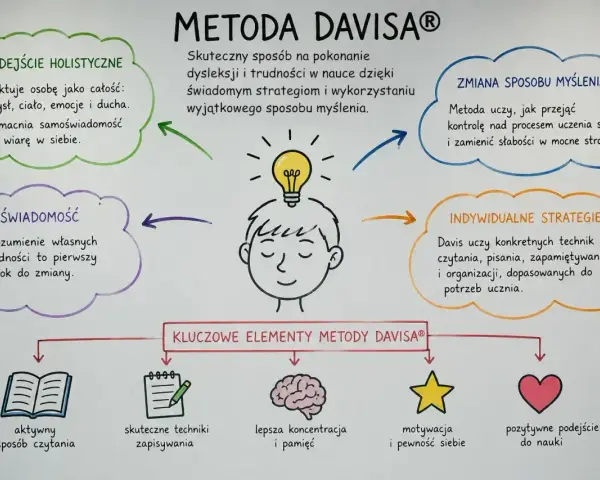 METODA DAVISA®
Skuteczny sposób na pokonanie
dysleksji i trudności w nauce dzięki
świadomym strategiom i wykorzystaniu
wyjątkowego sposobu myślenia.
DEJŚCIE HOLISTYCZNE
ktuje osobę jako całość:
ysł, ciało, emocje i ducha.
macnia samoświadomość
wiarę w siebie.
ZMIANA SPOSOBU MYŚLENI
Metoda uczy, jak przejąć
kontrolę nad procesem uczenia s
i zamienić słabości w mocne stro
ŚWIADOMOŚĆ
zumienie własnych
dności to pierwszy
ok do zmiany.
INDYWIDUALNE STRATEGIE
Davis uczy konkretnych technik
czytania, pisania, zapamiętywan
i organizacji, dopasowanych do
potrzeb ucznia.
KLUCZOWE ELEMENTY METODY DAVISA®
aktywny
posób czytania
skuteczne techniki
zapisywania
lepsza koncentracja
i pamięć
motywacja
i pewność siebie
pozytywne podejście
do nauki